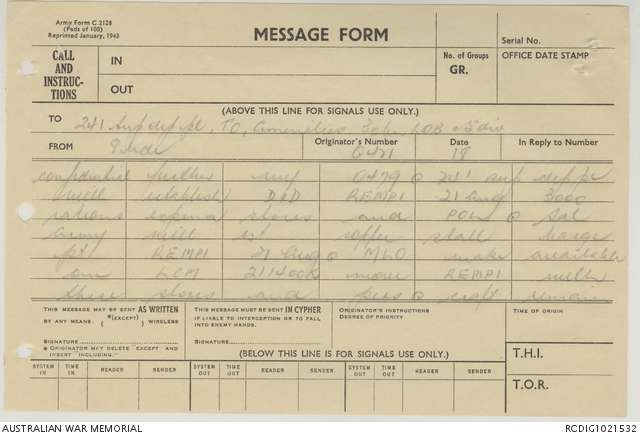 Army Form C 2128
(Pads of 100)
Reprinted January, 1943
MESSAGE FORM
Serial No.
CALL
AND
INSTRUC-
TIONS
IN
OUT
No. of Groups
GR.
OFFICE DATE STAMP
(ABOVE THIS LINE FOR SIGNALS USE ONLY.)
TO 241 Sup dep pl
FROM Originator's Number Date In Reply to Number
0471 19
confidential further my 0479 @ 241 sup dep pl
will establish DID REMPI 21 Aug 3000
rations stores and POL @ Sal
army will est coffer stall
pt REMPI 21 Aug @ MLO make available
one LCM 211400K move REMPI with
these stores and pers @ craft remain
THIS MESSAGE MAY BE SENT AS WRITTEN
BY ANY MEANS. *(EXCEPT) ( ) WIRELESS
SIGNATURE
* ORIGINATOR MAY DELETE "EXCEPT" AND
INSERT "INCLUDING."
THIS MESSAGE MUST BE SENT IN CYPHER
IF LIABLE TO INTERCEPTION OR TO FALL
INTO ENEMY HANDS.
SIGNATURE
ORIGINATOR'S INSTRUCTIONS
DEGREE OF PRIORITY
TIME OF ORIGIN
(BELOW THIS LINE IS FOR SIGNALS USE ONLY.)
T.H.I.
T.O.R.
SYSTEM IN TIME IN READER SENDER SYSTEM OUT TIME OUT READER SENDER SYSTEM OUT TIME OUT READER SENDER
AUSTRALIAN WAR MEMORIAL
RCDIG1021532